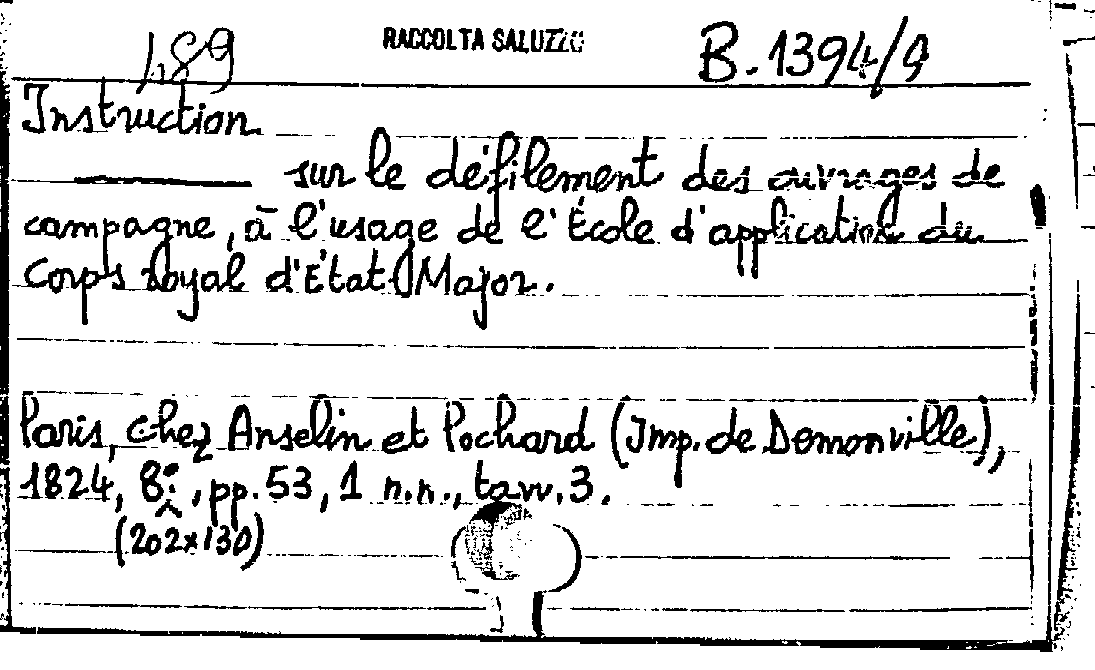 489 RACCOLTA SALUZZO B.1394/9
Instruction
sur le défilement des ouvrages de
campagne, à l'usage de l'École d'application du
Corps royal d'État Major.
Paris, chez Anselin et Pochard (Imp. de Demonville),
1824, 8°, pp. 53, 1 n.n., tavv. 3.
(202x130)